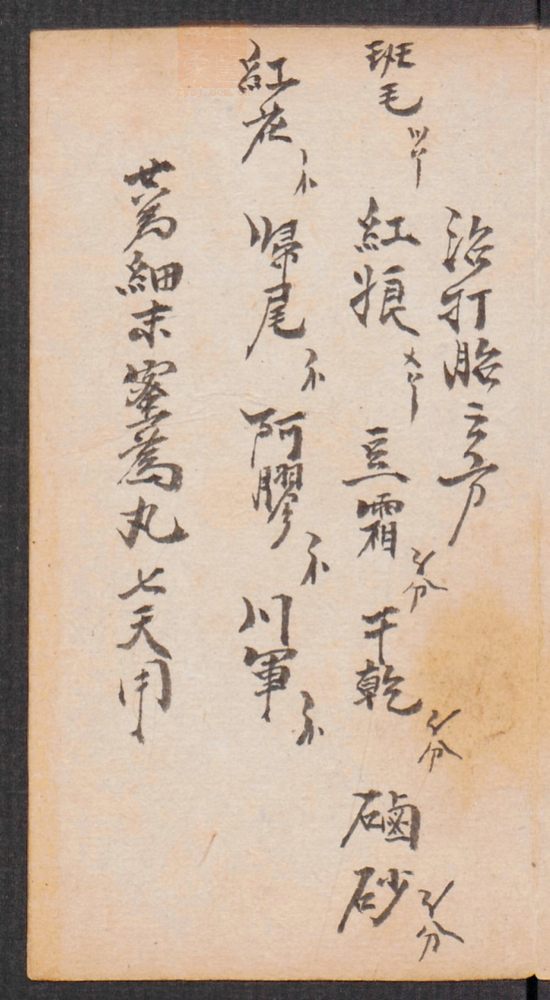 治打胎之方
班毛 紅娘 豆霜 分 干乾 分 磠砂 分
紅花 小 帰尾 小 阿膠 小 川軍 小
共為細末蜜為丸七天用